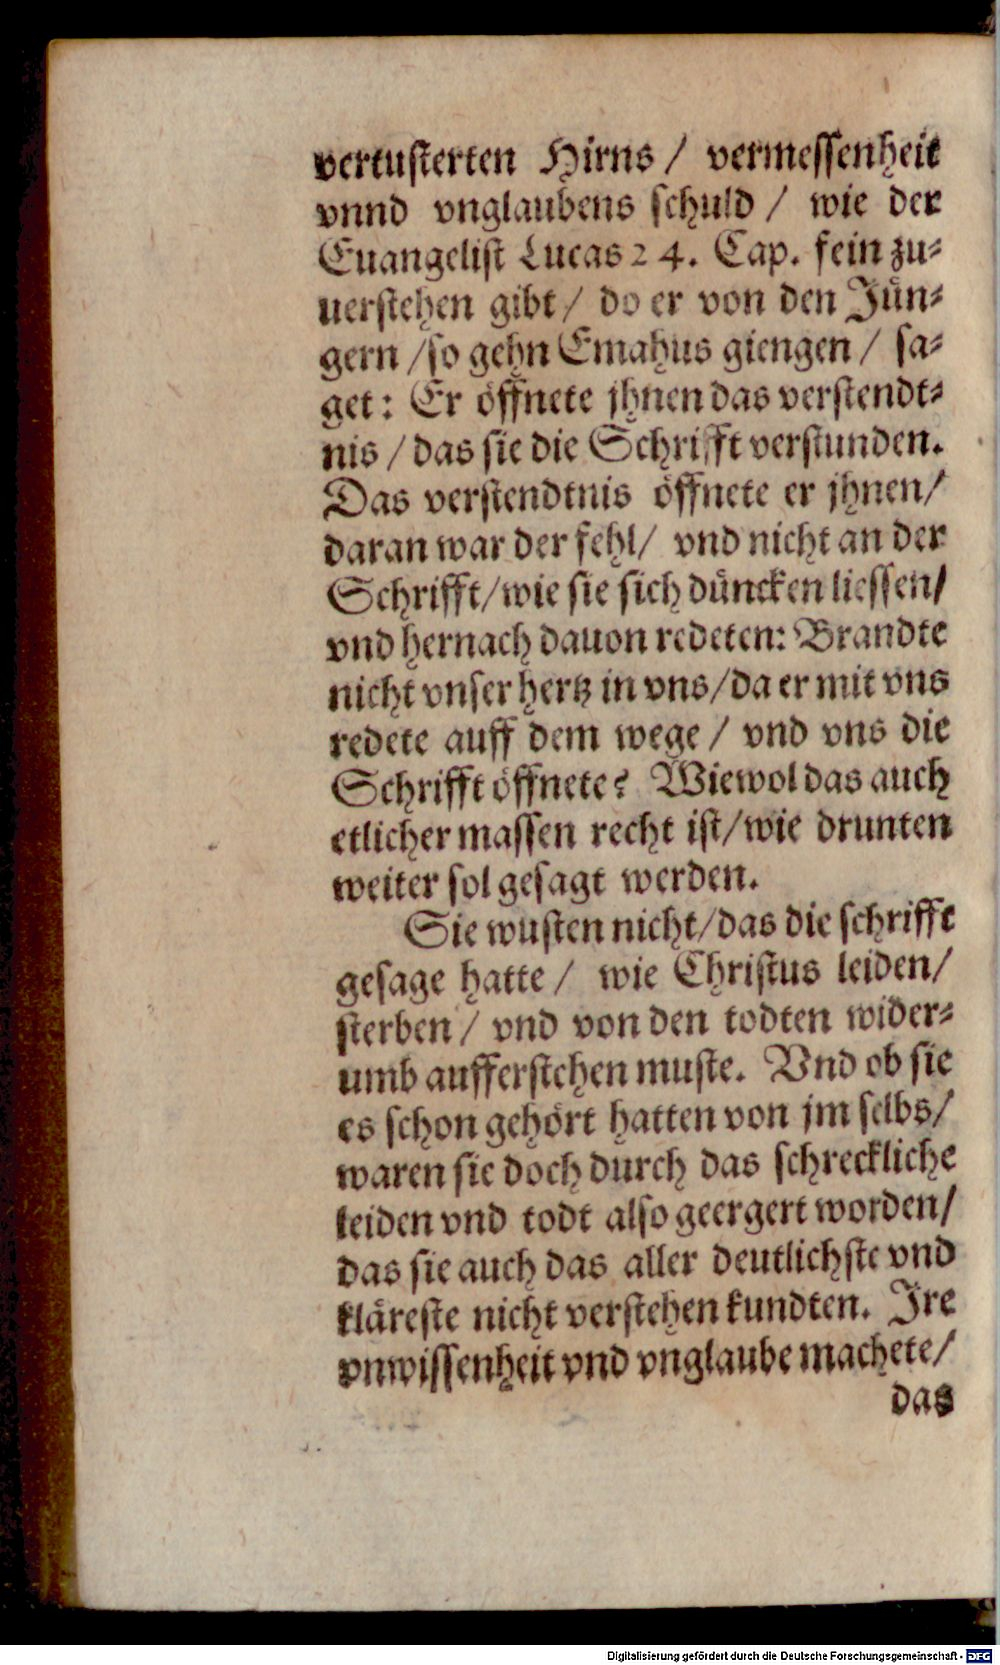 vertusterten Hirns / vermessenheit
vnnd vnglaubens schuld / wie der
Euangelist Lucas 24. Cap. fein zu⸗
uerstehen gibt / do er von den Jün⸗
gern /so gehn Emahus giengen / sa⸗
get: Er öffnete jhnen das verstendt⸗
nis / das sie die Schrifft verstunden.
Das verstendtnis öffnete er jhnen/
daran war der fehl/ vnd nicht an der
Schrifft/wie sie sich düncken liessen/
vnd hernach dauon redeten: Brandte
nicht vnser hertz in vns/da er mit vns
redete auff dem wege / vnd vns die
Schrifft öffnete? Wiewol das auch
etlicher massen recht ist/wie drunten
weiter sol gesagt werden.
Sie wusten nicht/das die schrifft
gesage hatte / wie Christus leiden/
sterben / vnd von den todten wider⸗
umb aufferstehen muste. Vnd ob sie
es schon gehört hatten von jm selbs/
waren sie doch durch das schreckliche
leiden vnd todt also geergert worden/
das sie auch das aller deutlichste vnd
kläreste nicht verstehen kundten. Jre
vnwissenheit vnd vnglaube machete/
das
Digitalisierung gefördert durch die Deutsche Forschungsgemeinschaft - DFG